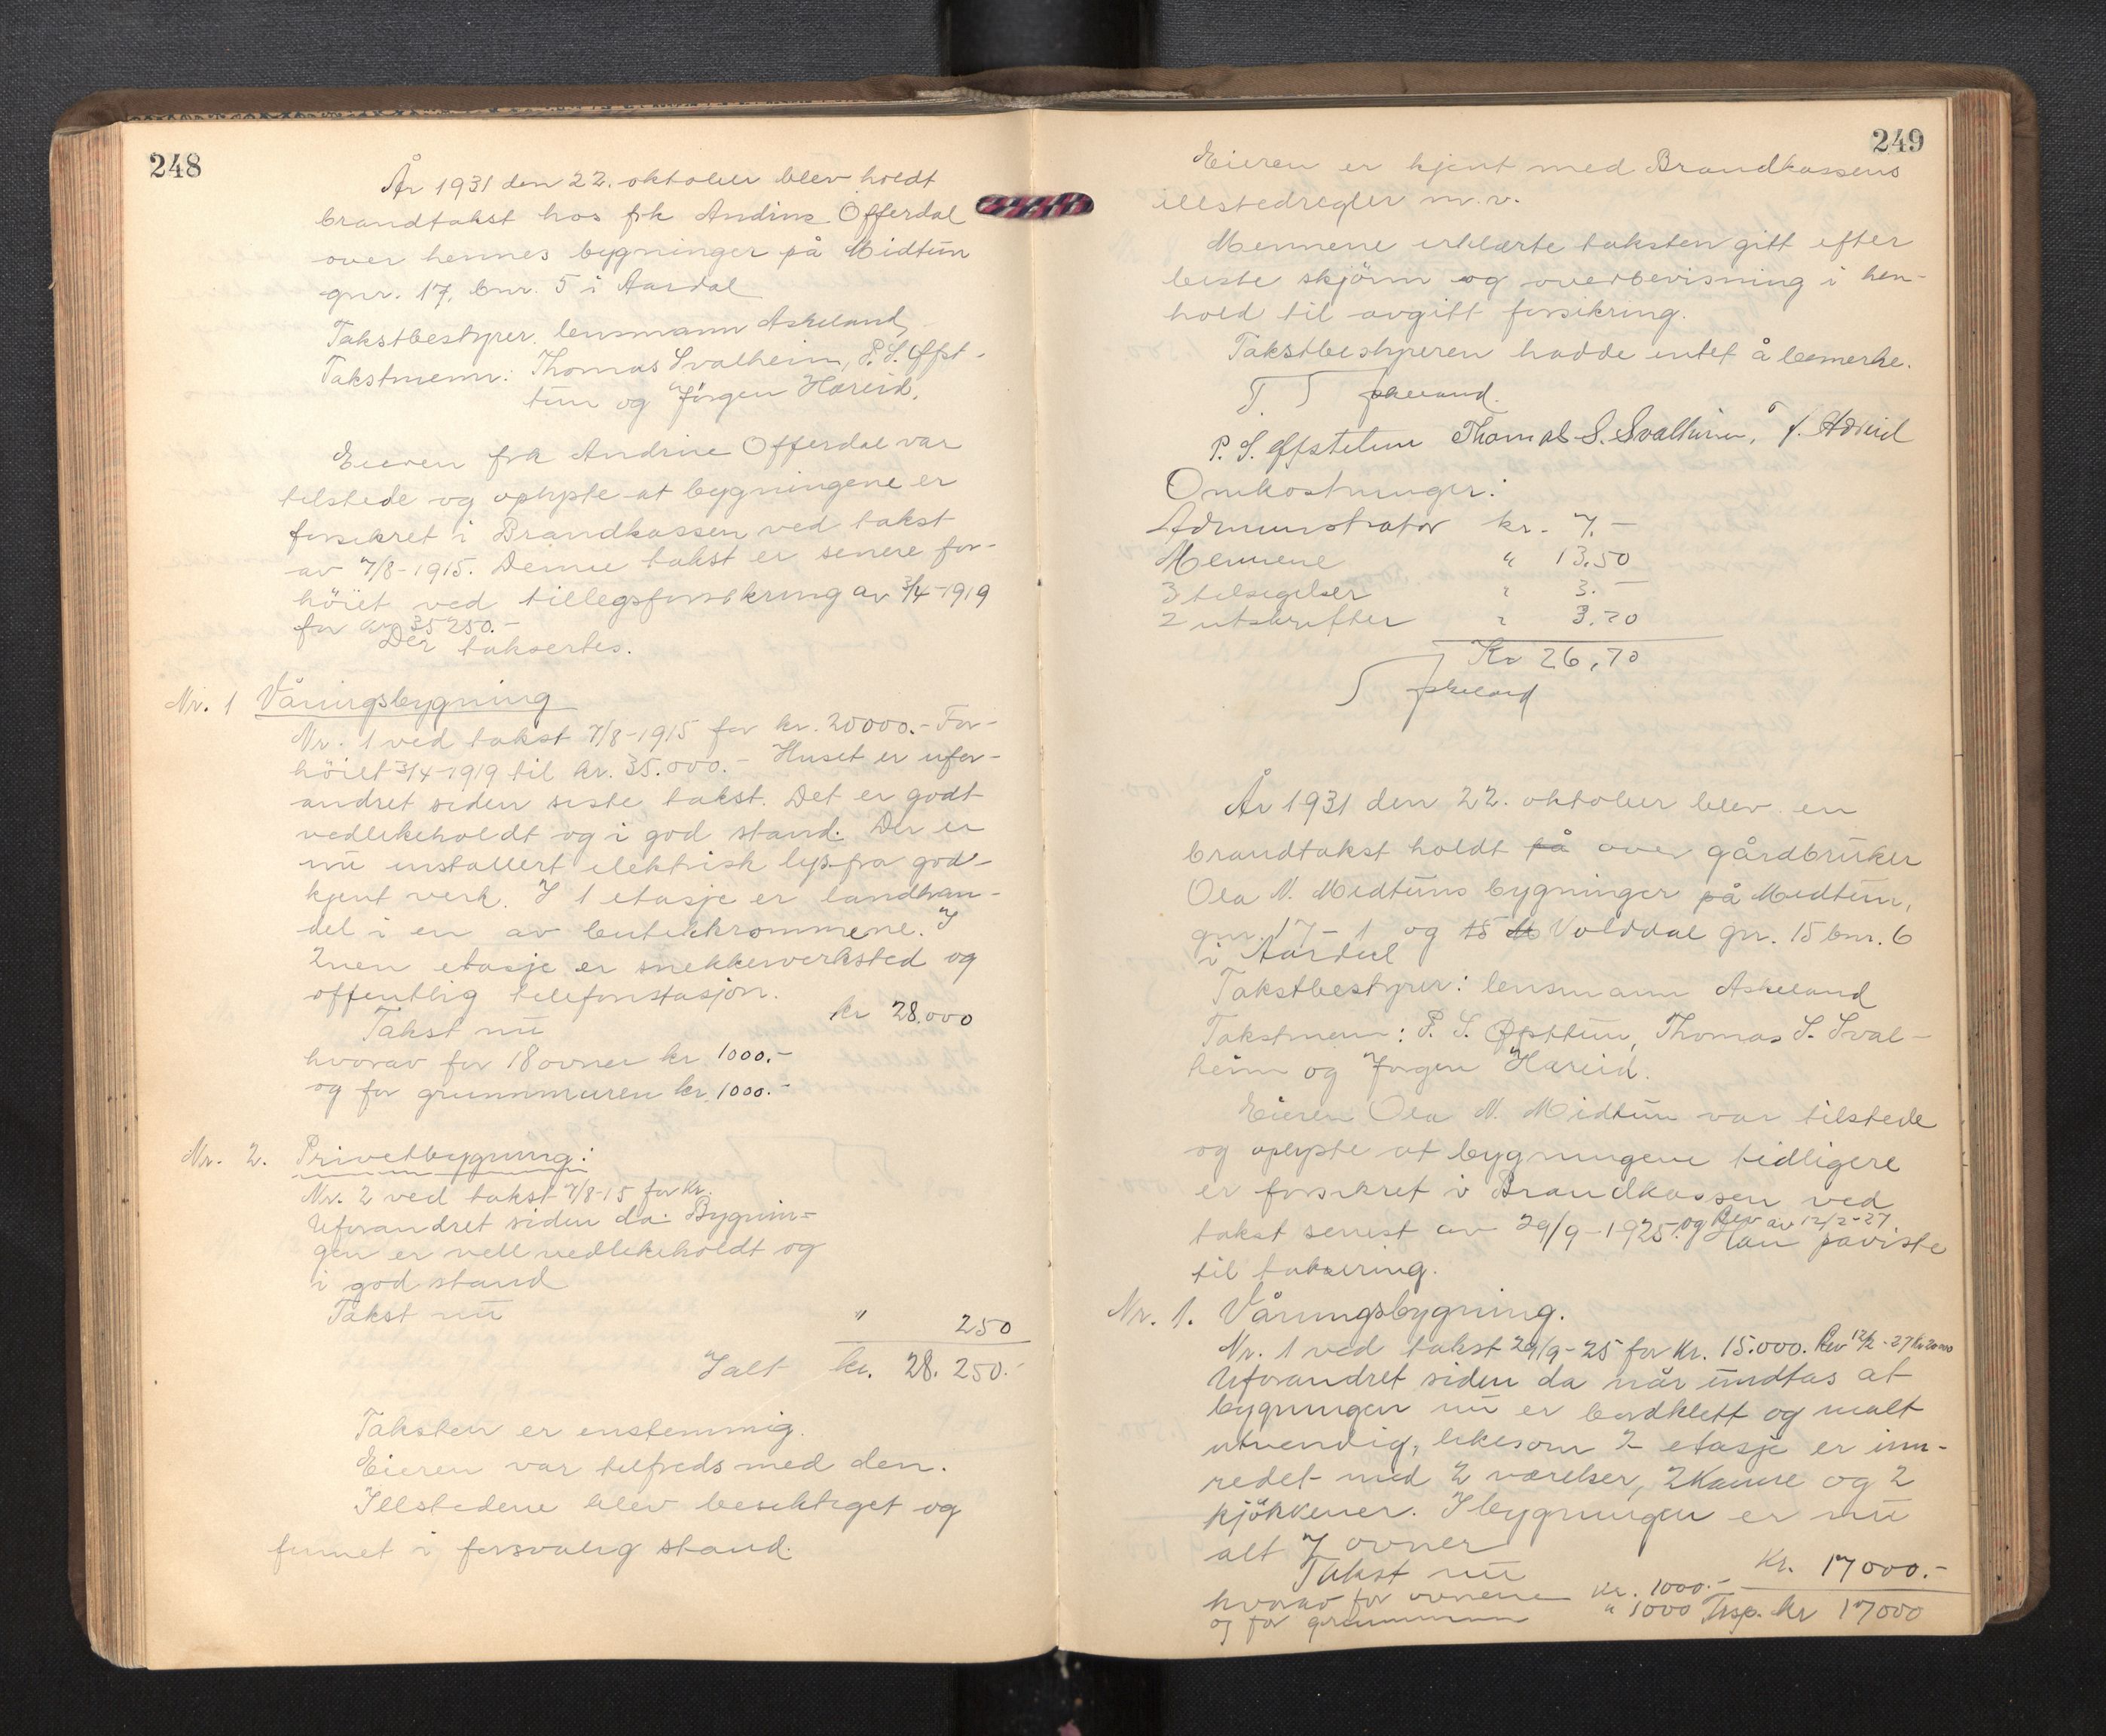 248
År 1931 den 22. oktober blev holdt
brandtakst hos frk Andrine Offerdal
over hennes bygninger på Midtun
gnr. 17, bnr. 5 i Aardal
Takstbestyrer, lensmann Askeland,
Takstmenn: Thomas Svalheim, P. S. Offst-
tun og Jørgen Hæreid.
Eieren frk Andrine Offerdal var
tilstede og oplyste at bygningene er
forsikret i Brandkassen ved takst
av 7/8-1915. Denne takst er senere for-
höiet ved tillegsforsikring av 3/4-1919
for kr 35250.-
Der taksertes.
Nr. 1 Våningsbygning
Nr. 1 ved takst 7/8-1915 for kr. 20000.- For-
höiet 3/4-1919 til kr. 35.000.- Huset er ufor-
andret siden siste takst. Det er godt
vedlikeholdt og i god stand. Der er
nu installert elektrisk lys fra god-
kjent verk. I 1 etasje er landhan-
del i en av butikkrommene. I
2nen etasje er snekkerverksted og
offentlig telefonstasjon.
Takst nu kr 28.000
hvorav for 18 ovner kr 1000.-
og for grunnmuren kr. 1000.-
Nr. 2. Privetbygning:
Nr. 2 ved takst 7/8-15 for kr.
Uforandret siden da. Bygnin-
gen er vell vedlikeholdt og
i god stand
Takst nu " 250
Ialt kr. 28.250.-
Taksten er enstemmig.
Eieren var tilfreds med den.
Illstedene blev besiktiget og
funnet i forsvarlig stand.
249
Eieren er kjent med Brandkassens
illstedregler m.v.
Mennene erklærte taksten gitt efter
beste skjönn og overbevisning i hen-
hold til avgitt forsikring.
Takstbestyreren hadde intet å bemerke.
Askeland.
P. S. Offstetun Thomas S. Svalheim, J. Hæreid
Omkostninger:
Administrator kr. 7.-
Mennene " 13.50
3 tilsigelser " 3.-
2 utskrifter " 3.20
Kr 26,70
Askeland
År 1931 den 22. oktober blev en
brandtakst holdt på over gårdbruker
Ola N. Midtuns bygninger på Midtun,
gnr. 17-1 og 15 Volddal gnr. 15 bnr. 6
i Aardal
Takstbestyrer: lensmann Askeland
Takstmenn: P. S. Offsttun, Thomas S. Sval-
heim og Jørgen Hæreid.
Eieren Ola N. Midtun var tilstede
og oplyste at bygningene tidligere
er forsikret i Brandkassen ved
takst senest av 29/9-1925. og Rev av 12/2-27. Han påviste
til taksering.
Nr. 1. Våningsbygning.
Nr. 1 ved takst 29/9-25 for kr. 15.000. Rev 12/2-27 kr 20000
Uforandret siden da når undtas at
bygningen nu er bordklett og malt
utvendig, likesom 2 etasje er inn-
redet med 2 værelser, 2 kamre og 2
kjökkener. I bygningen er nu
alt 7 ovner
Takst nu kr. 17000.-
hvorav for ovnene kr. 1000.-
og for grunnmuren " 1000 Trsp. kr 17000